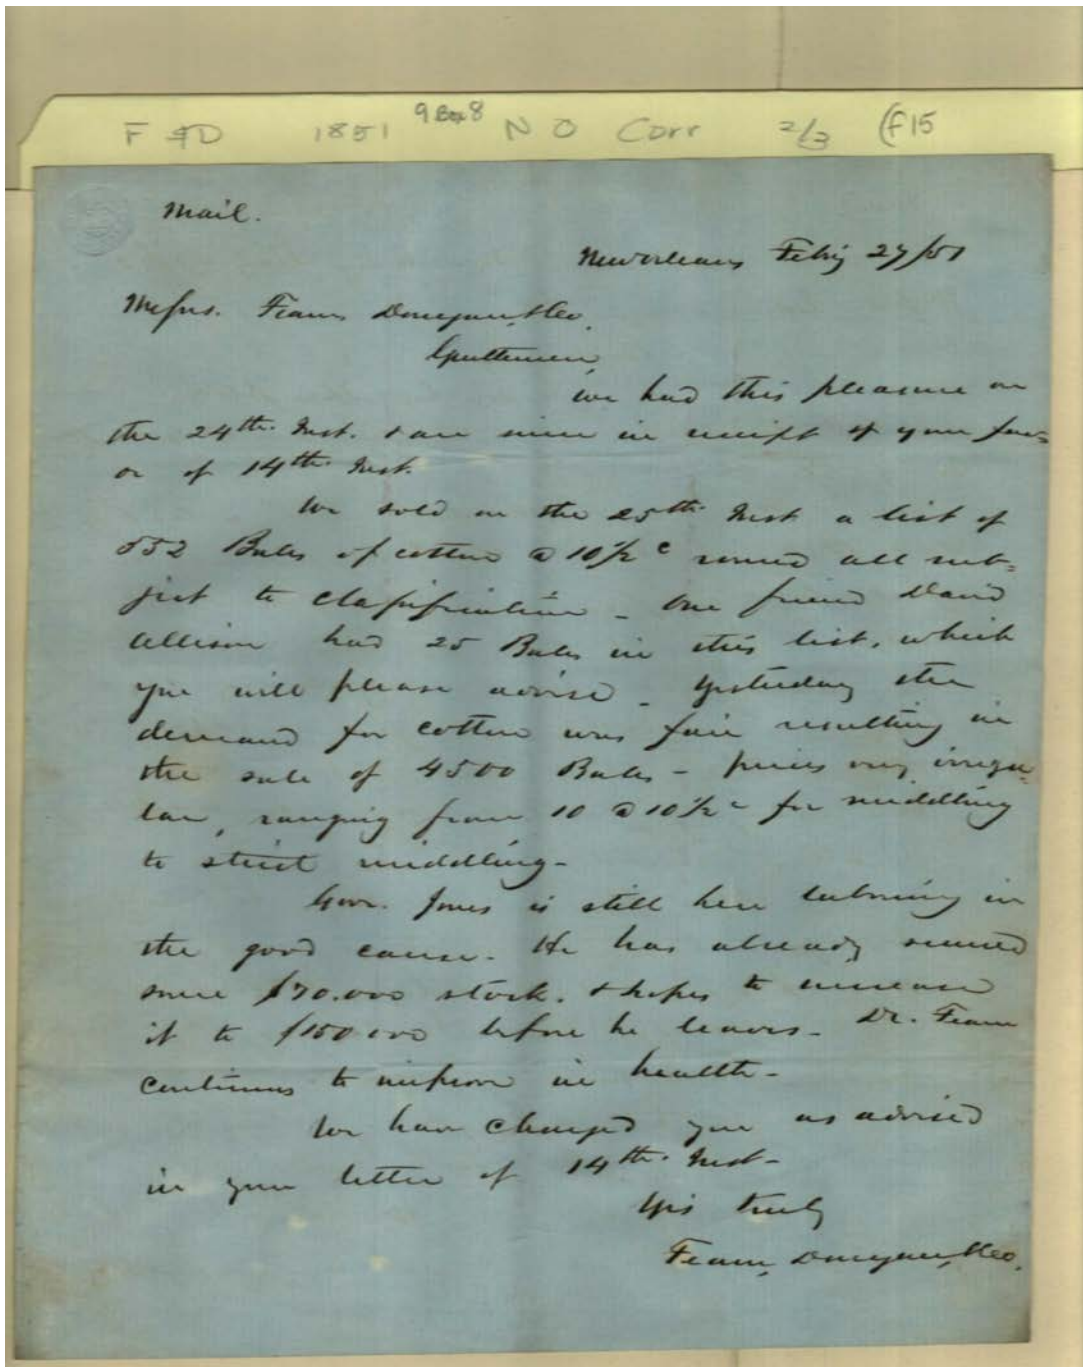 F & D 1851 9 Box 8 N O Corr 2/3 (f15
Mail.
New Orleans Feby 27/51
Messrs. Fearn Donegan, & Co.
Gentlemen,
we had this pleasure on
the 24th. Inst. & are since in receipt of your fav-
or of 14th. Inst.
We sold on the 25th. Inst a list of
552 Bales of cotton @ 10 1/2 c round all sub-
ject to classification - Our friend David
Allison had 25 Bales in this list, which
you will please advise - Yesterday the
demand for cotton was fair resulting in
the sale of 4500 Bales - prices very irregu-
lar, ranging from 10 @ 10 1/2 c for middling
to strict middling -
Govr. Jones is still here laboring in
the good cause. He has already secured
some $70.000 stock. & hopes to increase
it to $150 000 before he leaves - Dr. Fearn
continues to improve in health -
We have charged you as advised
in your letter of 14th. Inst -
Yrs truly
Fearn, Donegan, & Co.